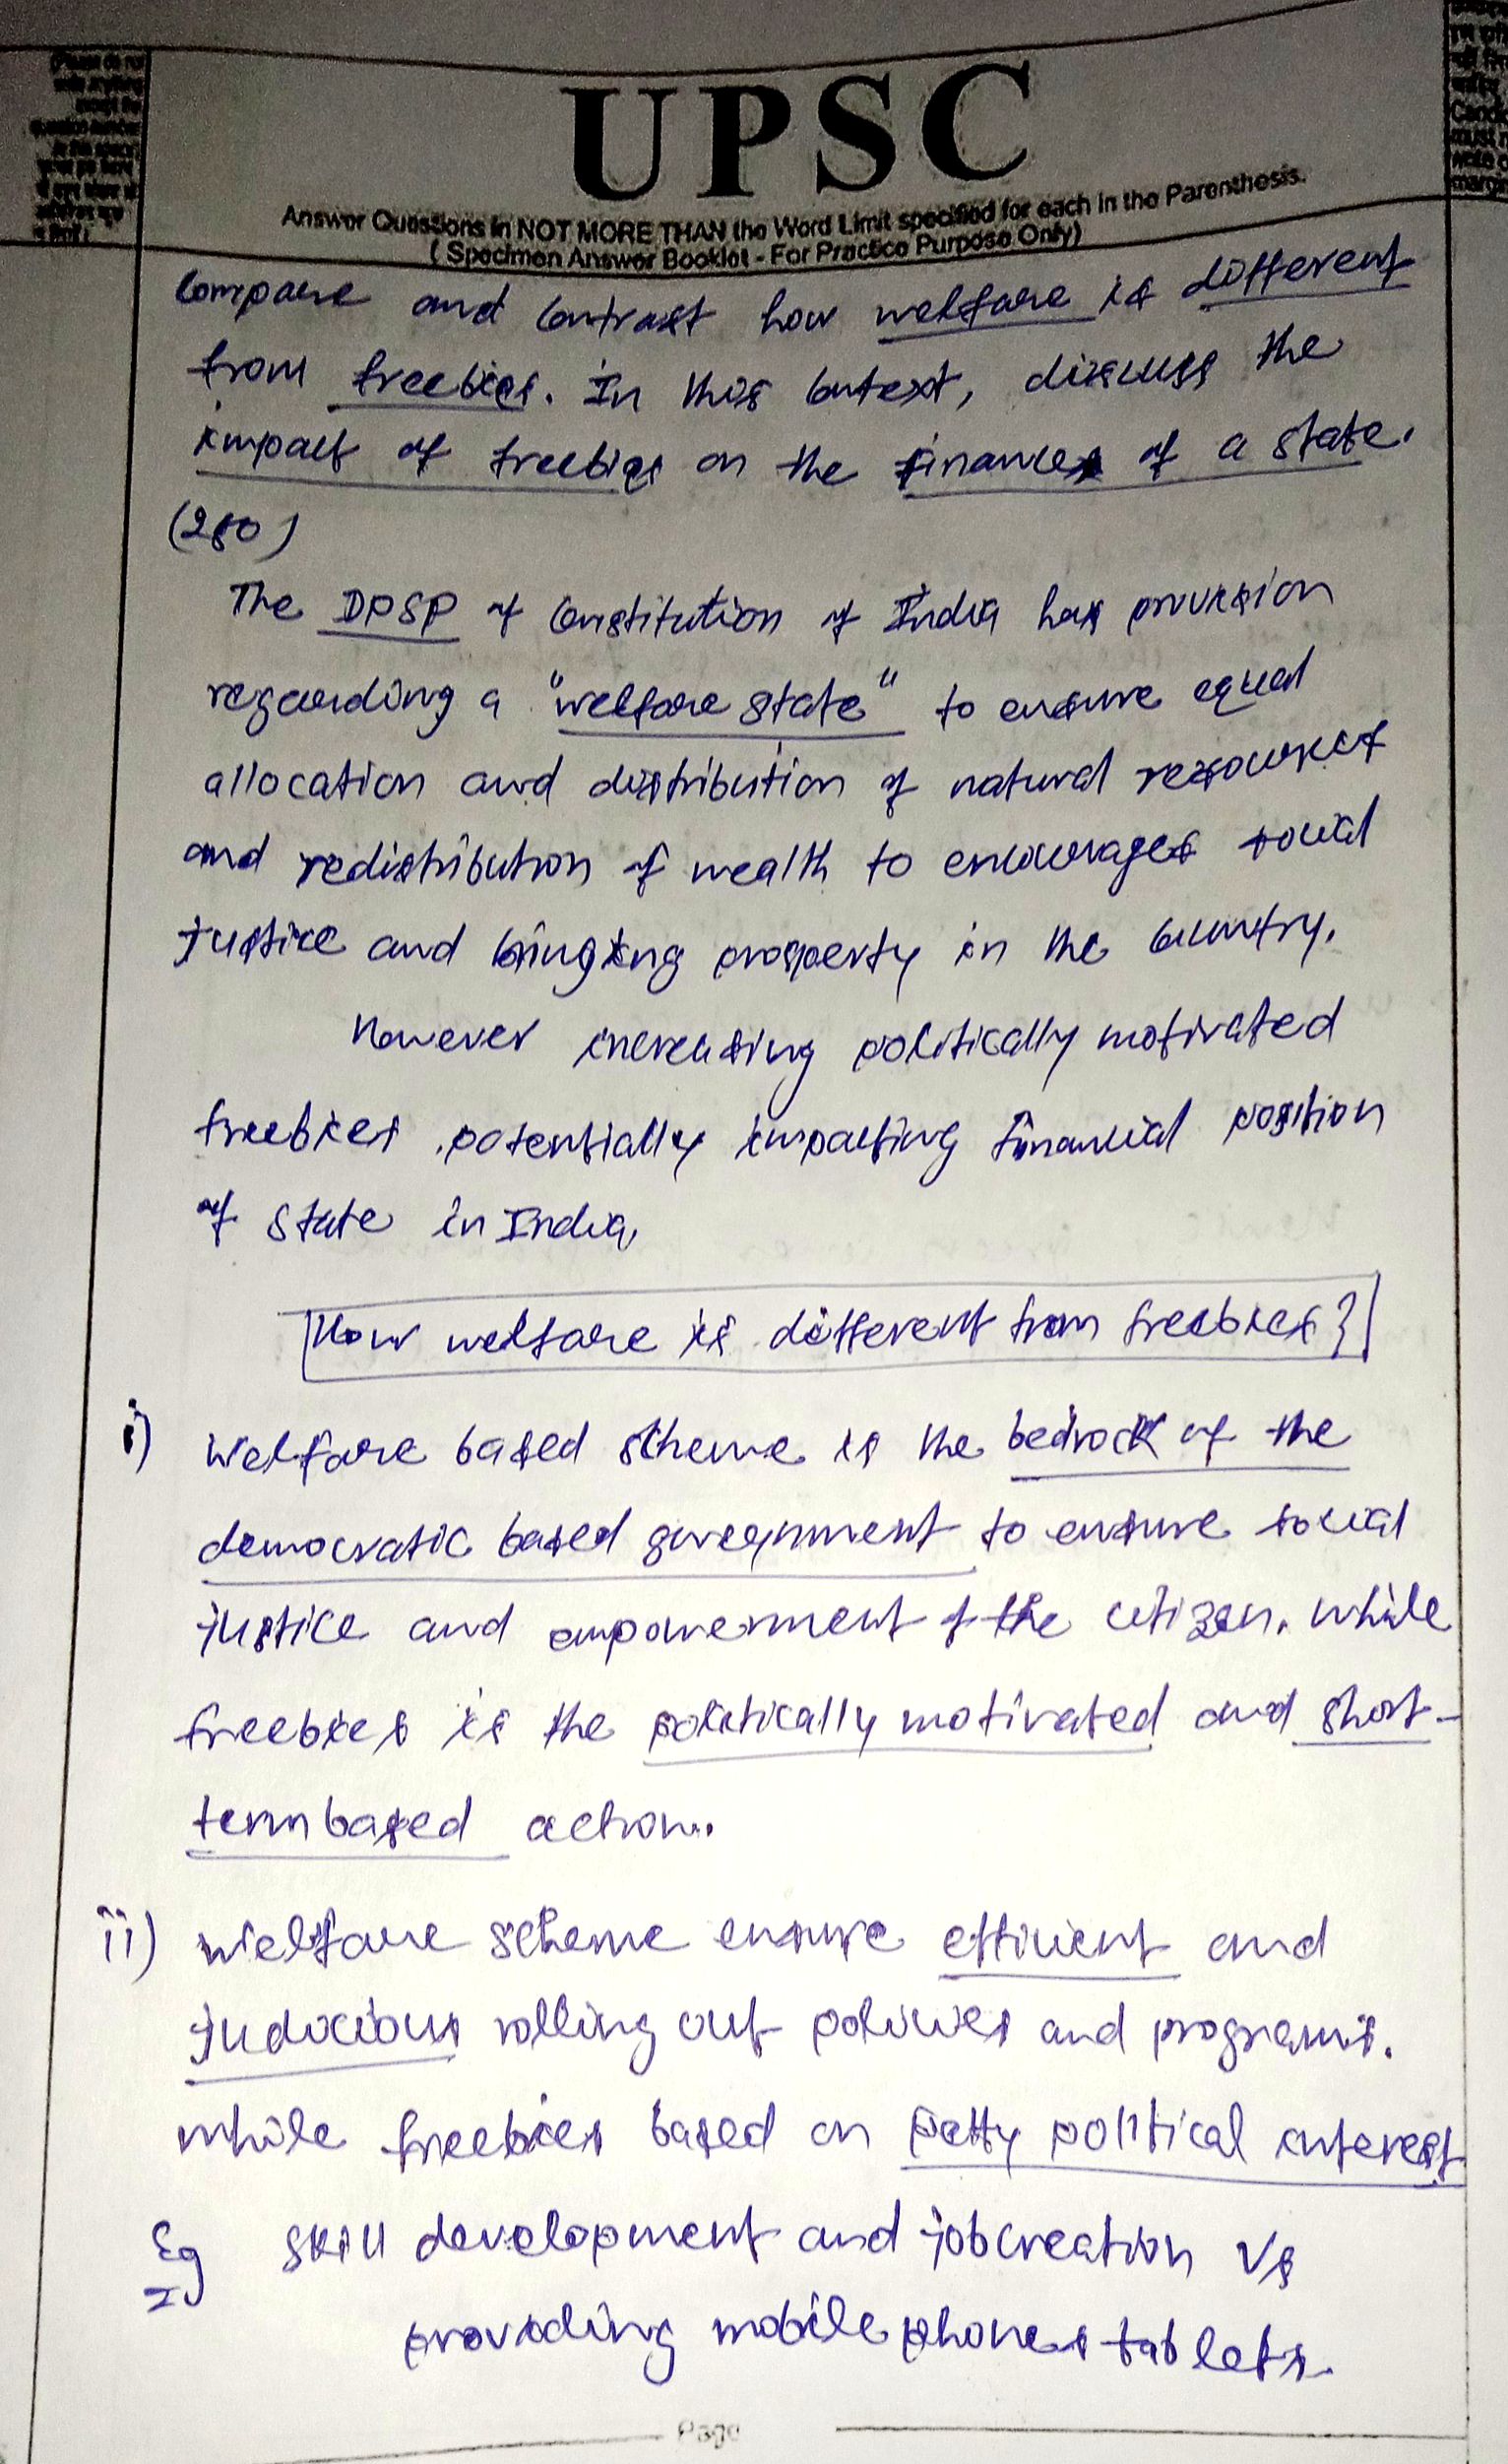 UPSC
Answer Questions in NOT MORE THAN the Word Limit specified for each in the Parenthesis.
( Specimen Answer Booklet - For Practice Purpose Only)
Compare and Contrast how welfare is different
from freebies. In this context, discuss the
impact of freebies on the finances of a state.
(250)
The DPSP of Constitution of India has provision
regarding a "welfare state" to ensure equal
allocation and distribution of natural resources
and redistribution of wealth to encourages social
justice and bringing prosperty in the country.
However increasing politically motivated
freebies potentially impacting financial position
of state in India,
How welfare is different from freebies?
i) Welfare based scheme is the bedrock of the
democratic based government to ensure social
justice and empowerment of the citizen. While
freebies is the politically motivated and short-
term based action.
ii) Welfare scheme ensure efficient and
judicious rolling out policies and programs.
while freebies based on petty political interest
Eg skill development and job creation Vs
providing mobile phones tablets.
Page